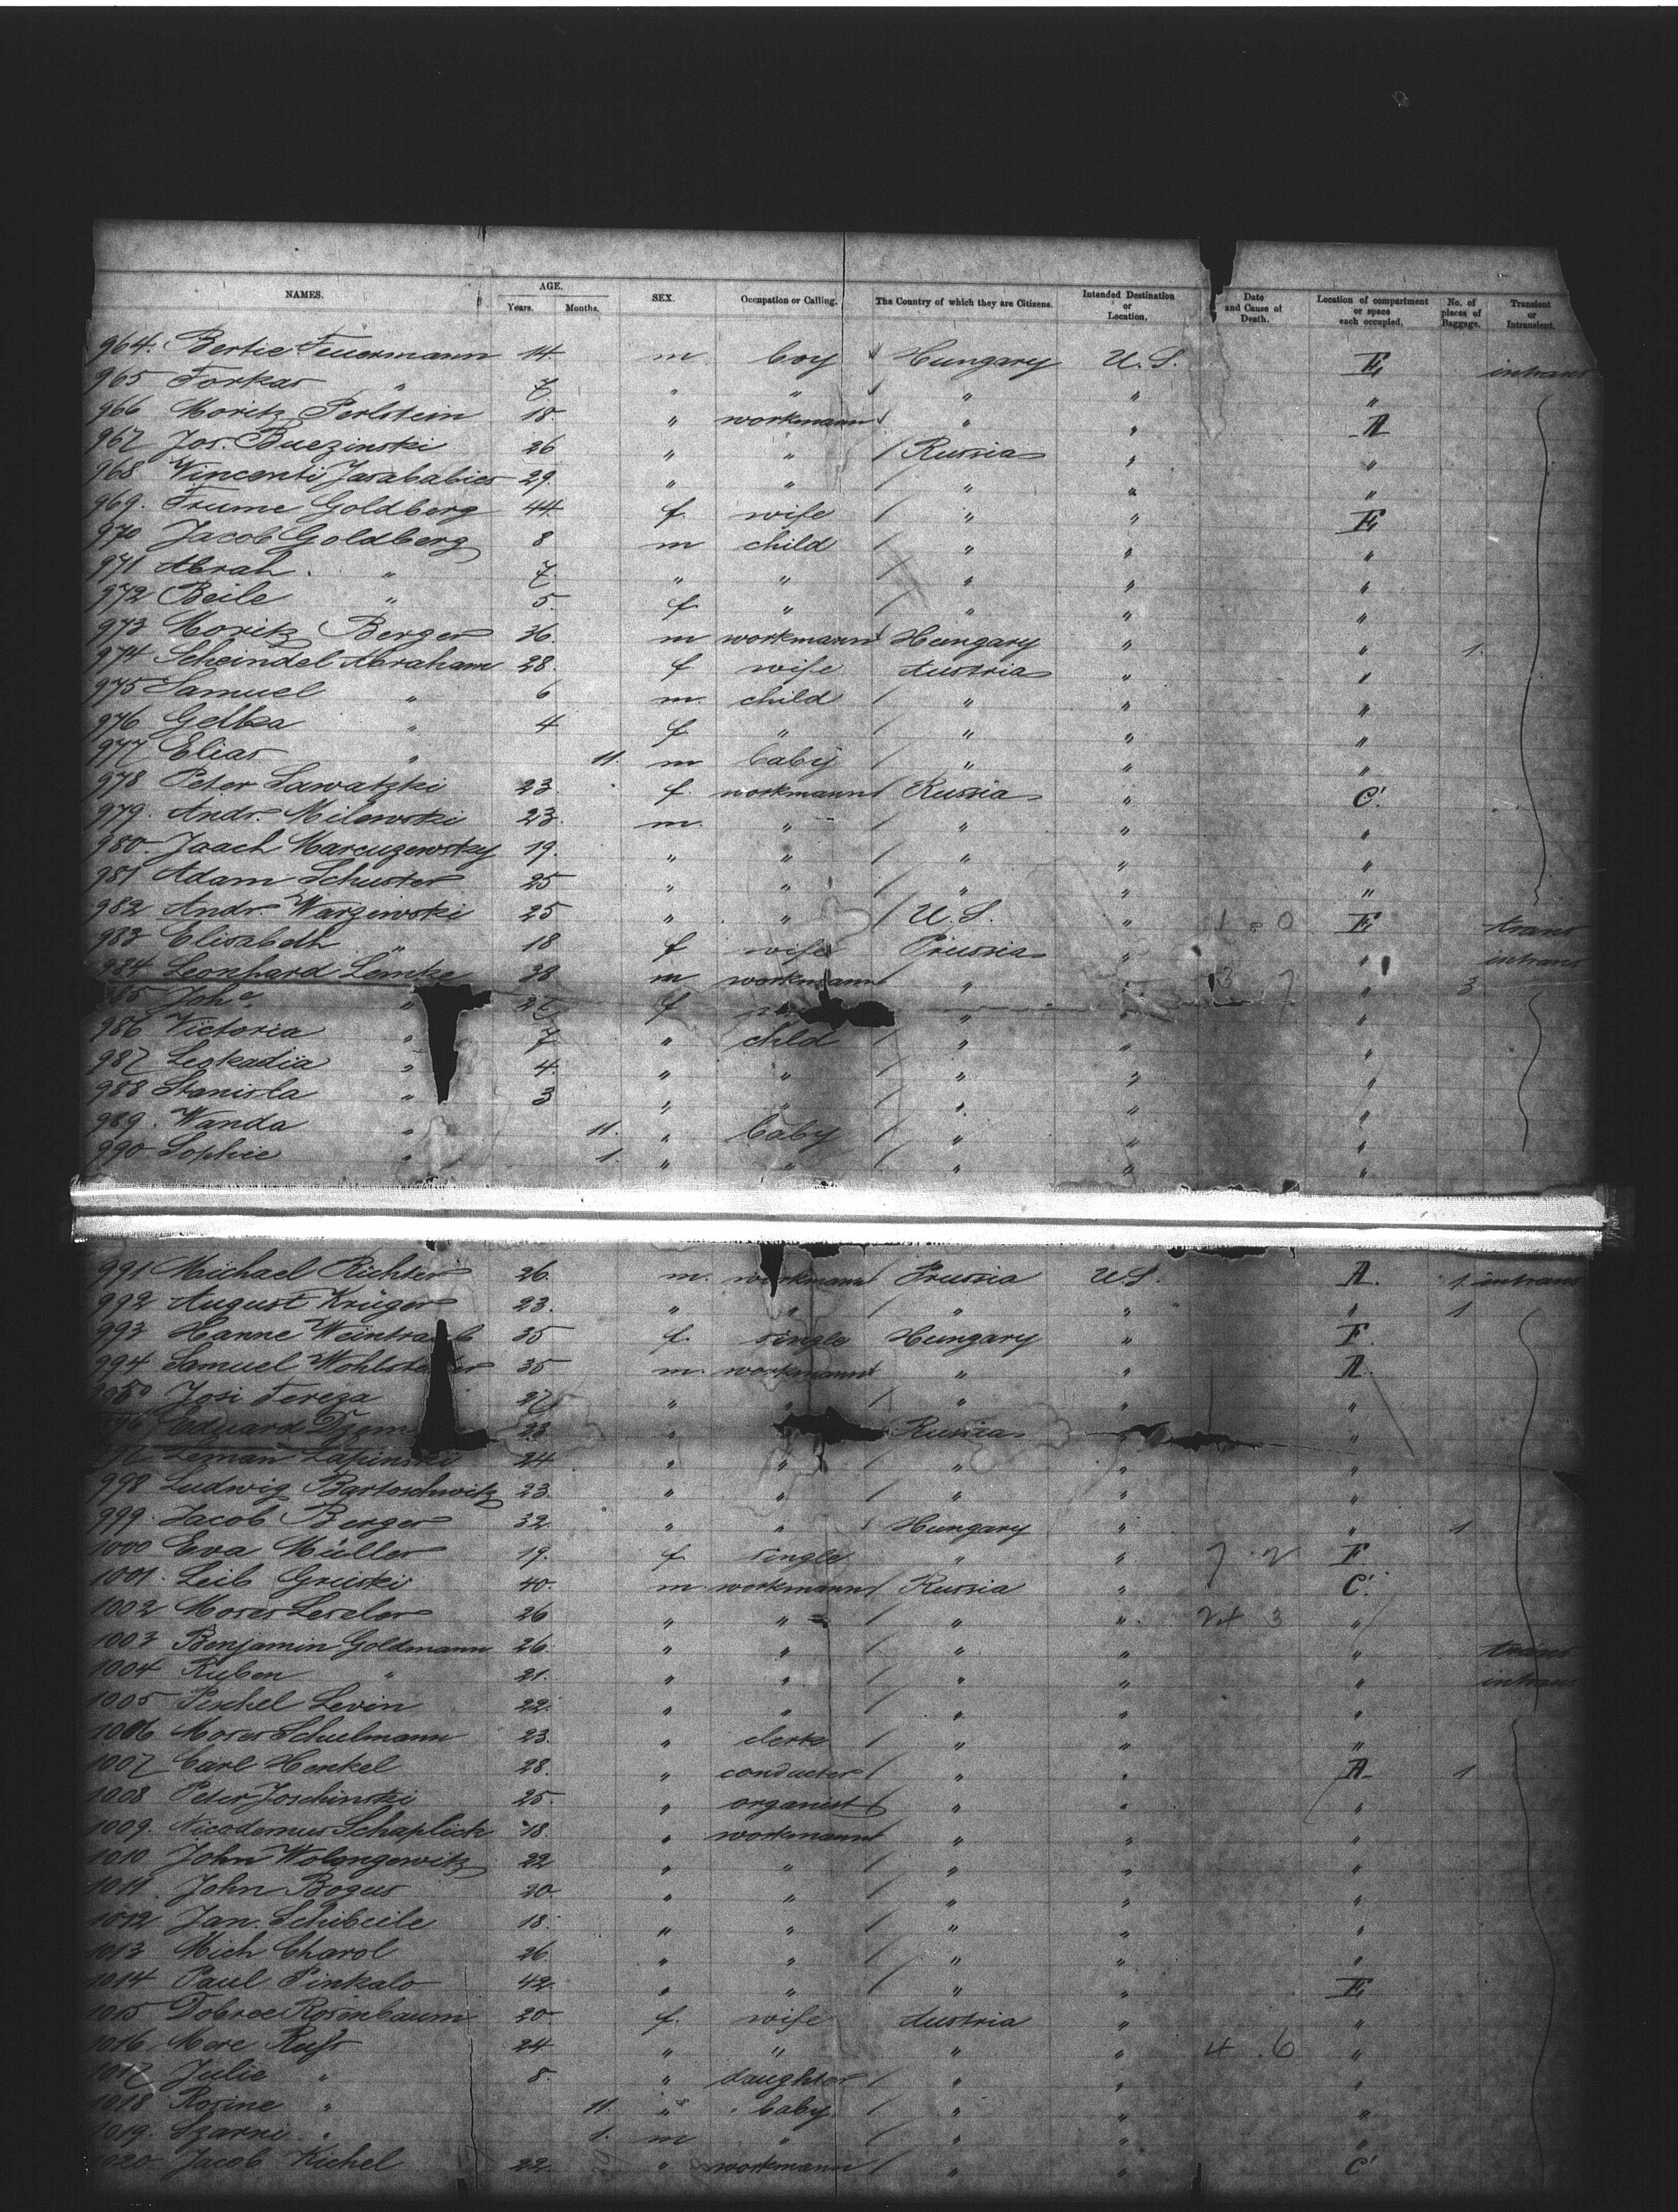 NAMES. AGE. Years. Months. SEX. Occupation or Calling. The Country of which they are Citizens. Intended Destination or Location. Date and Cause of Death. Location of compartment or space each occupied. No. of pieces of Baggage. Transient or Intransient.
964. Bertie Feuermann 14 m boy Hungary U.S. E intrans
965 Forkas " 7 " " " " "
966 Moritz Perlstein 18. " workmann " " A
967 Jos. Buezinski 26 " " Russia " "
968 Vincenti 29. " " " " "
969. Frume Goldberg 44 f. wife " " E
970 Jacob Goldberg 8 m child " " "
971 Abrah. " 7 " " " " "
972 Beile " 5. f. " " " "
973 Moritz Berger 36. m workmann Hungary " " 1.
974 Scheindel Abraham 28. f wife Austria " "
975 Samuel " 6 m. child " " "
976 " 4 f " " " "
977 Elias " 11. m baby " " "
978 Peter Sawatzki 23 f. workmann Russia " C.
979. Andr. Milewski 23. m. " " " "
980. Marcuzewsky 19. " " " " "
981 Adam Schuster 25 " " " " "
982 Andr. Warzewski 25 " " U.S. " E trans
983 Elisabeth " 18 f wife Prussia " " intrans
984 Leonhard Lemke 38 m workmann " " " 3
985 Johe " f " " "
986 Victoria " 7 " child " " "
987 Leokadia " 4. " " " " "
988 Stanisla " 3 " " " " "
989. Wanda " 11. " baby " " "
990 Sophie " 1. " " " " "
991 Michael Richter 26. m. workmann Prussia U.S. A. 1. intrans
992 August Krüger 23. " " " " " 1
993 Hanne 35 f. single Hungary " F.
994 Samuel 35 m. workmann " " A.
Josi Tereza 27 " " " " "
Eduard 23 " Russia " "
Lapinski 24 " " " " "
998 Ludwig Bartoschwitz 23. " " " " "
999. Jacob Berger 32. " " Hungary " " 1
1000 Eva Müller 19. f. single " " F.
1001. Leib 40. m workmann Russia " C.
1002 Moses 26 " " " " "
1003 Benjamin Goldmann 26. " " " " " trans
1004 Ruben " 21. " " " " " intrans
1005 Levin 22. " " " " "
1006 Moses Schulmann 23. " clerk " " "
1007 Carl Henkel 28. " conductor " " A 1
1008 Peter Joschinski 25. " organist " " "
1009. Nicodemus Schaplick 18. " workmann " " "
1010 John 22 " " " " "
1011. John Bogus 20. " " " " "
1012 Jan. Schibeile 18. " " " " "
1013 Mich Charol 26. " " " " "
1014 Paul Pinkalo 42. " " " " E
1015 Rosenbaum 20. f. wife Austria " "
1016 24 " " " " "
1017 Julie " 8. " daughter " " "
1018 Rosine " 11. " baby " " "
1019. " 1. m " " " "
1020 Jacob Kichel 22. " workmann " " C